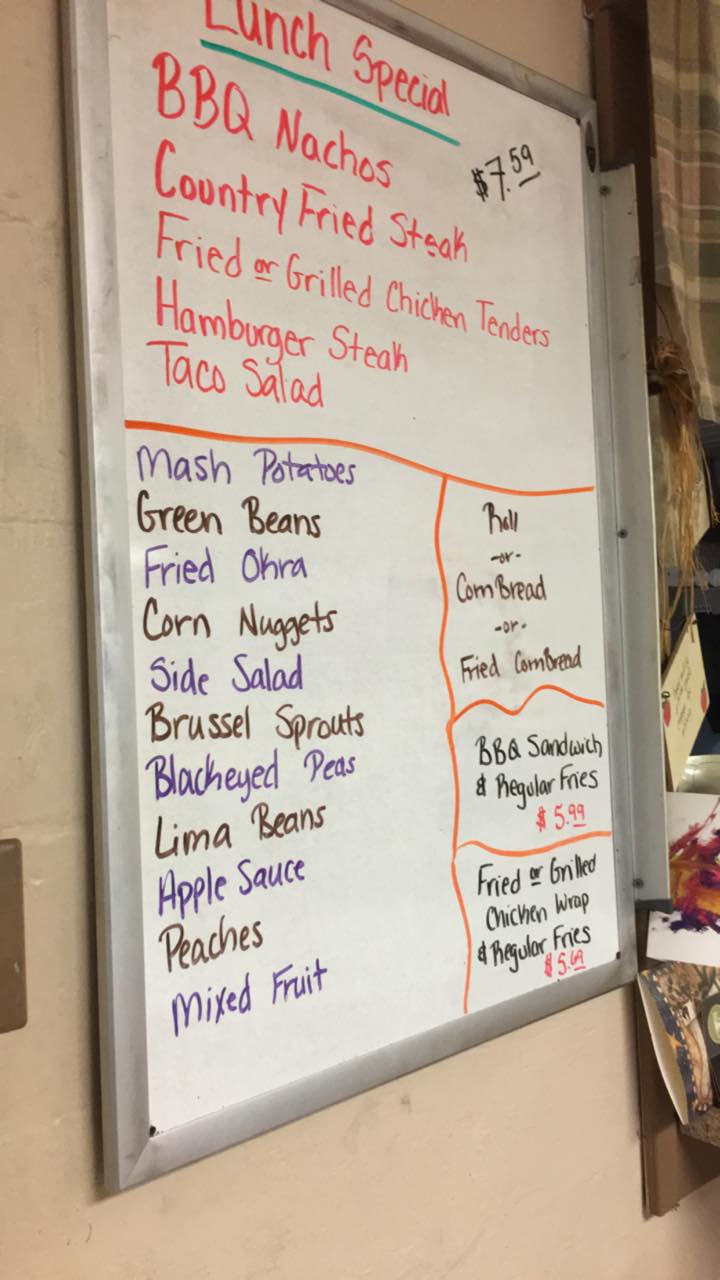 Lunch Special
BBQ Nachos
$7.59
Country Fried Steak
Fried or Grilled Chicken Tenders
Hamburger Steak
Taco Salad
Mash Potatoes
Green Beans
Fried Okra
Corn Nuggets
Side Salad
Brussel Sprouts
Blackeyed Peas
Lima Beans
Apple Sauce
Peaches
Mixed Fruit
Roll
-or-
CornBread
-or-
Fried CornBread
BBQ Sandwich
& Regular Fries
$5.99
Fried or Grilled
Chicken Wrap
& Regular Fries
$5.69